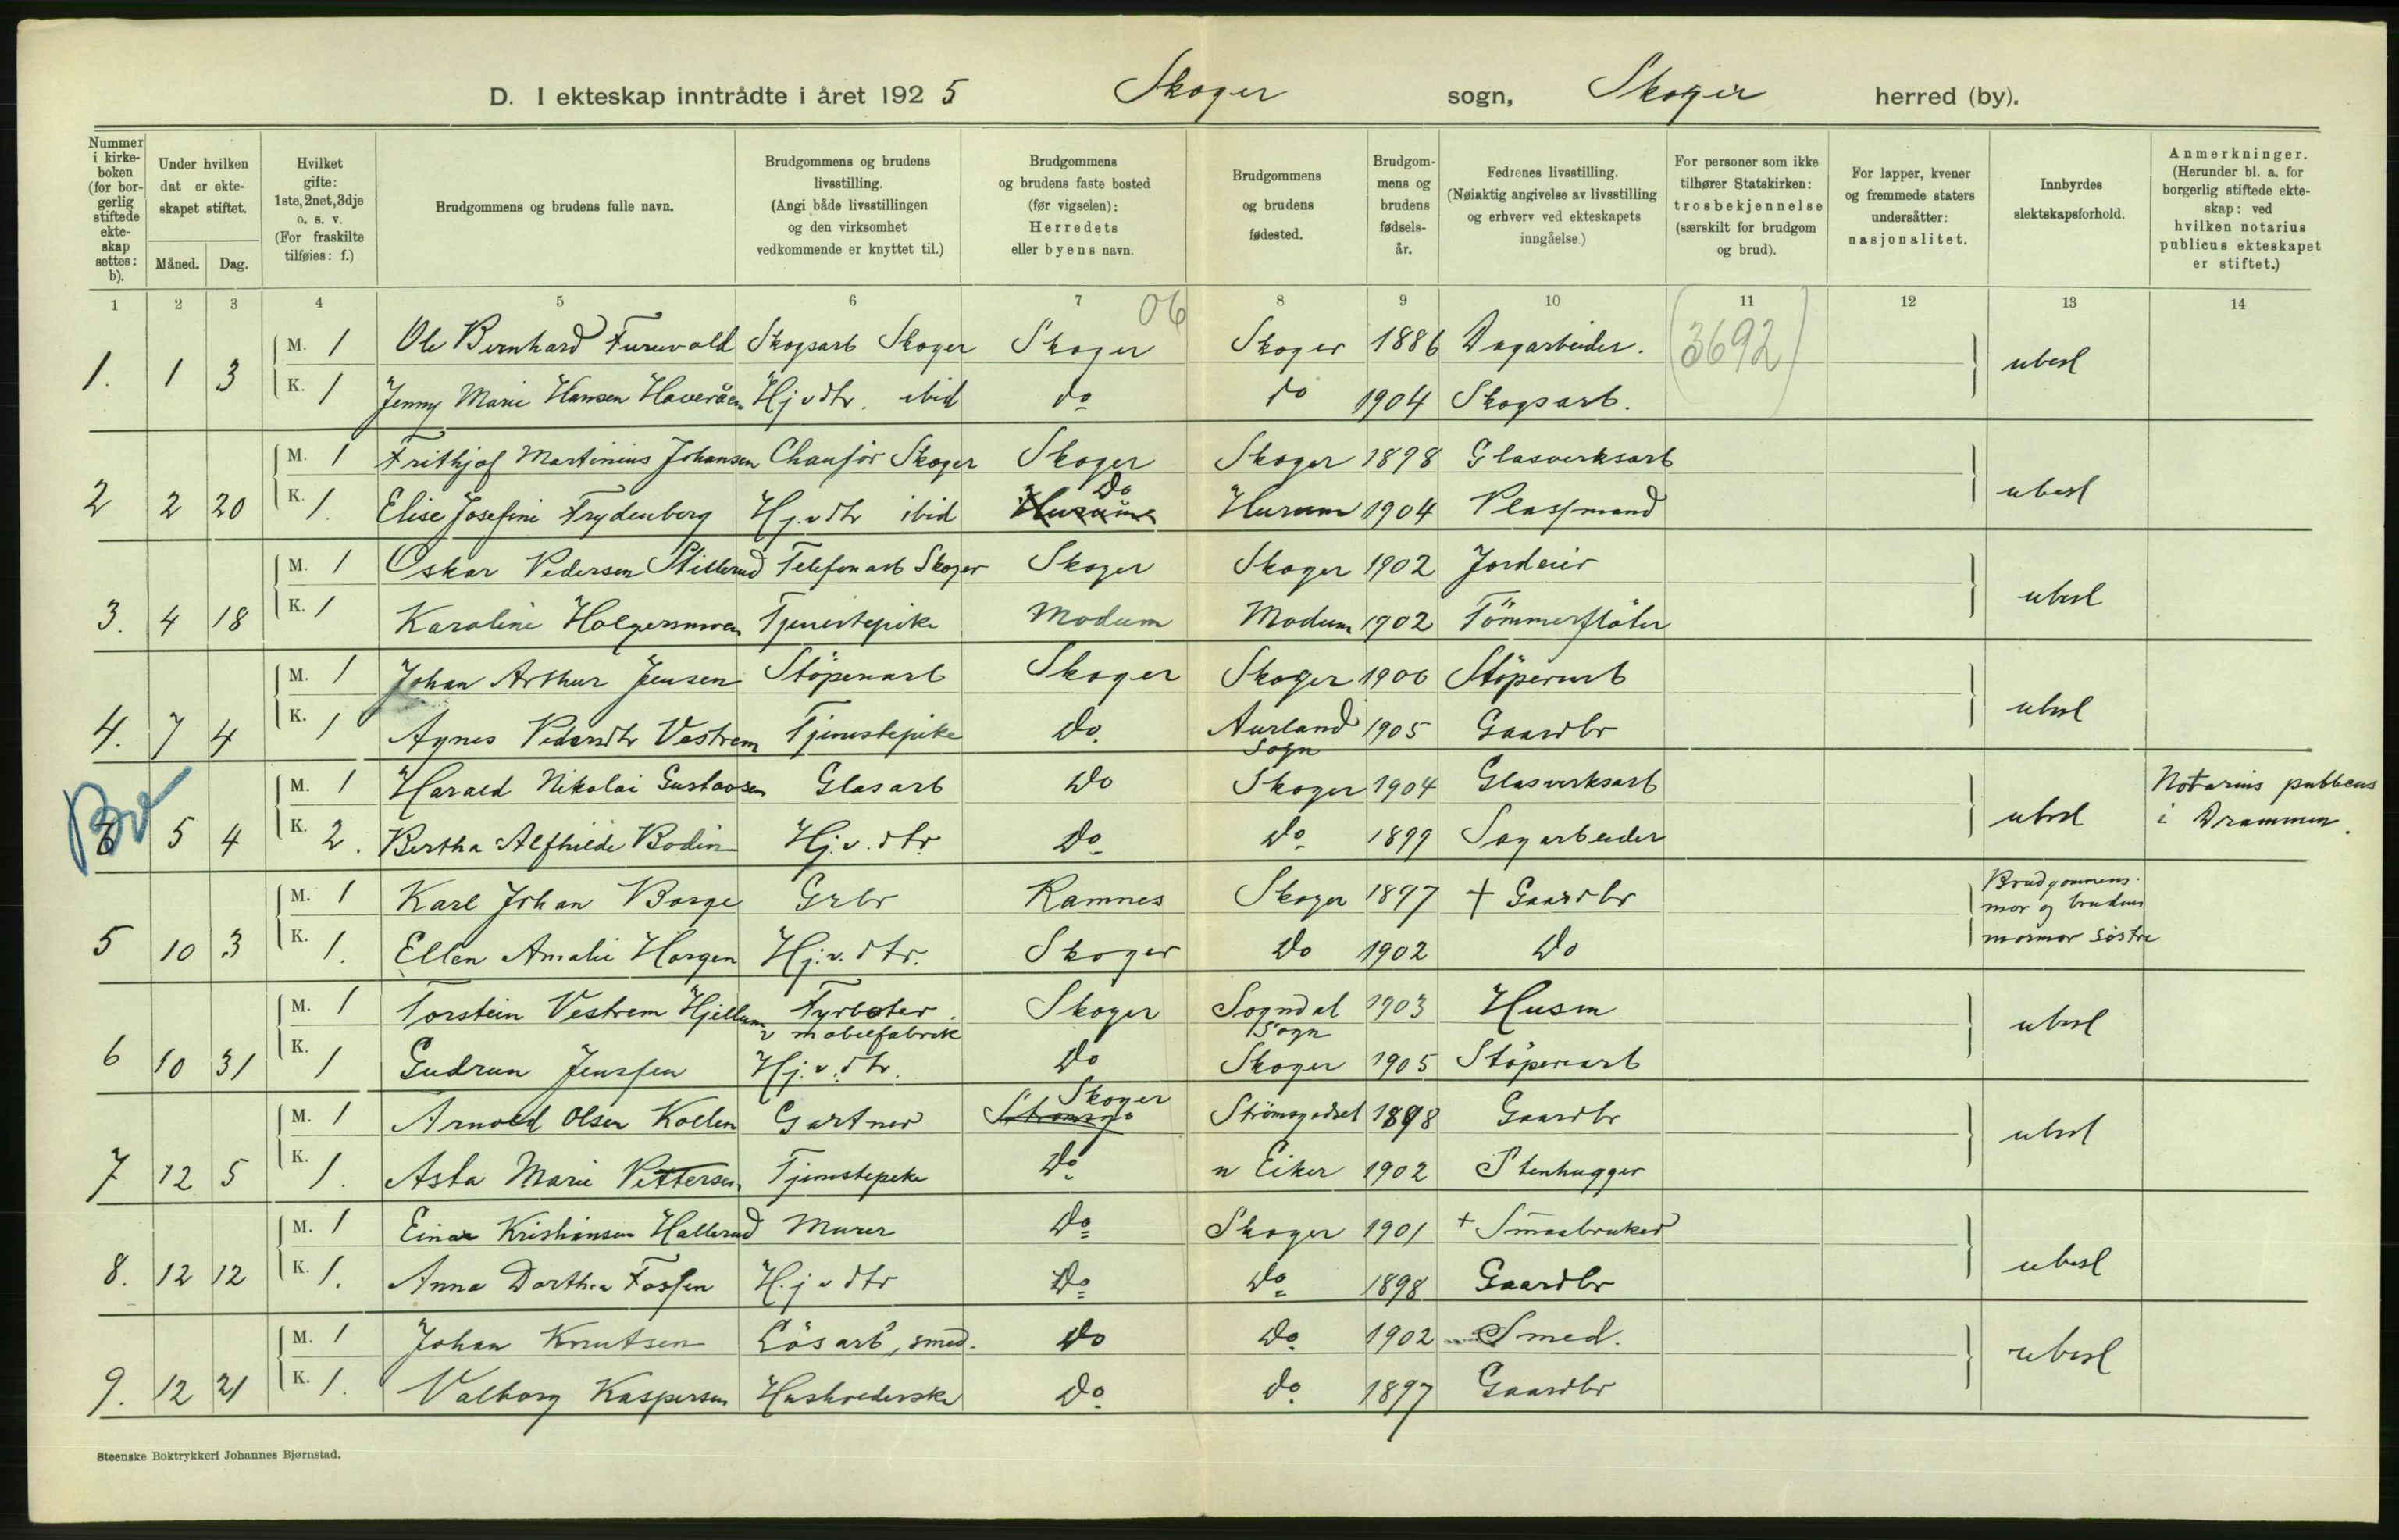 D. I ekteskap inntrådte i året 192 5 Skoger sogn, Skoger herred (by).
Nummer i kirke-boken (for bor-gerlig stiftede ekte-skap settes: b).
Under hvilken dat er ekte-skapet stiftet.
Måned. Dag.
Hvilket gifte: 1ste, 2net, 3dje o. s. v. (For fraskilte tilføies: f.)
Brudgommens og brudens fulle navn.
Brudgommens og brudens livsstilling. (Angi både livsstillingen og den virksomhet vedkommende er knyttet til.)
Brudgommens og brudens faste bosted (før vigselen): Herredets eller byens navn.
Brudgommens og brudens fødested.
Brudgom-mens og brudens fødsels-år.
Fedrenes livsstilling. (Nøiaktig angivelse av livsstilling og erhverv ved ekteskapets inngåelse.)
For personer som ikke tilhører Statskirken: trosbekjennelse (særskilt for brudgom og brud).
For lapper, kvener og fremmede staters undersåtter: nasjonalitet.
Innbyrdes slektskapsforhold.
Anmerkninger. (Herunder bl. a. for borgerlig stiftede ekte-skap: ved hvilken notarius publicus ekteskapet er stiftet.)
1 2 3 4 5 6 7 8 9 10 11 12 13 14
06
(3692)
1. 1 3 M. 1 Ole Bernhard Furuvold Skogsarb Skoger Skoger Skoger 1886 Dagarbeider. ubesl
K. 1 Jenny Marie Hansen Haveråen Hj v dtr. ibid do do 1904 Skogsarb.
2 2 20 M. 1 Frithjof Martinius Johansen Chauför Skoger Skoger Skoger 1898 Glasverksarb ubesl
K. 1. Elise Josefine Frydenberg Hj. v dtr ibid Do Hurum 1904 Plassmand
3. 4 18 M. 1 Oskar Pedersen Stillerud Telefonarb Skoger Skoger Skoger 1902 Jordeier ubesl
K. 1 Karoline Holgersmoen Tjenestepike Modum Modum 1902 Tömmerflöter
4. 7 4 M. 1 Johan Arthur Jensen Stöperiarb Skoger Skoger 1906 Stöperiarb ubesl
K. 1 Agnes Pedersdtr Vestrem Tjenestepike Do. Aurland Sogn 1905 Gaardbr
Bv 5 4 M. 1 Harald Nikolai Gustavsen Glasarb Do Skoger 1904 Glasverksarb ubesl Notarius publicus
K. 2. Bertha Alfhilde Bodin Hj. v. dtr. Do Do 1899 Sagarbeider i Drammen.
5 10 3 M. 1 Karl Johan Borge Grbr Ramnes Skoger 1897 + Gaardbr Brudgommens mor og brudens mormor söstre
K. 1. Ellen Amalie Horgen Hj. v. dtr. Skoger Do 1902 Do
6 10 31 M. 1 Torstein Vestrem Hjellum Fyrböter v mobelfabrik Skoger Sogndal Sogn 1903 Husm ubesl
K. 1 Gudrun Jenssen Hj. v. dtr. Do Skoger 1905 Stöperiarb
7 12 5 M. 1 Arnold Olsen Kollen Gartner Skoger Strömsgodset 1898 Gaardbr ubesl
K. 1. Asta Marie Pettersen Tjenestepike Do n Eiker 1902 Stenhugger
8. 12 12 M. 1 Einar Kristiansen Hallerud Murer Do Skoger 1901 + Smaabruker ubesl
K. 1. Anna Dorthea Fossen Hj v dtr Do Do 1898 Gaardbr
9. 12 21 M. 1 Johan Knutsen Lösarb, smed. Do Do. 1902 Smed. ubesl
K. 1. Valborg Kaspersen Husholderske Do. Do. 1897 Gaardbr
Steenske Boktrykkeri Johannes Bjørnstad.